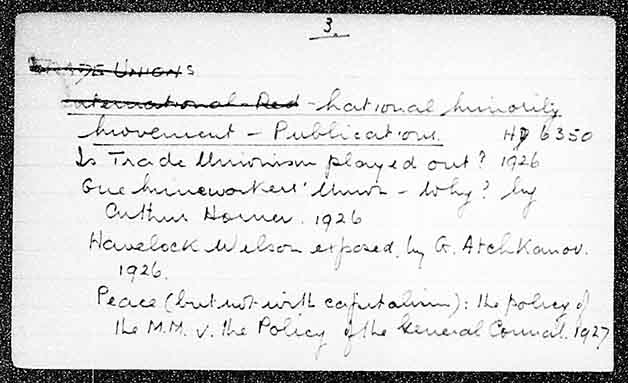 3.
TRADE UNIONS
International Red - National Minority
Movement - Publications. HD 6350
Is Trade Unionism played out? 1926
One Mineworkers' Union - Why? by
Arthur Horner. 1926
Havelock Wilson exposed, by G. Atchkanov.
1926.
Peace (but not with capitalism): the policy of
the M.M. v. the Policy of the General Council. 1927